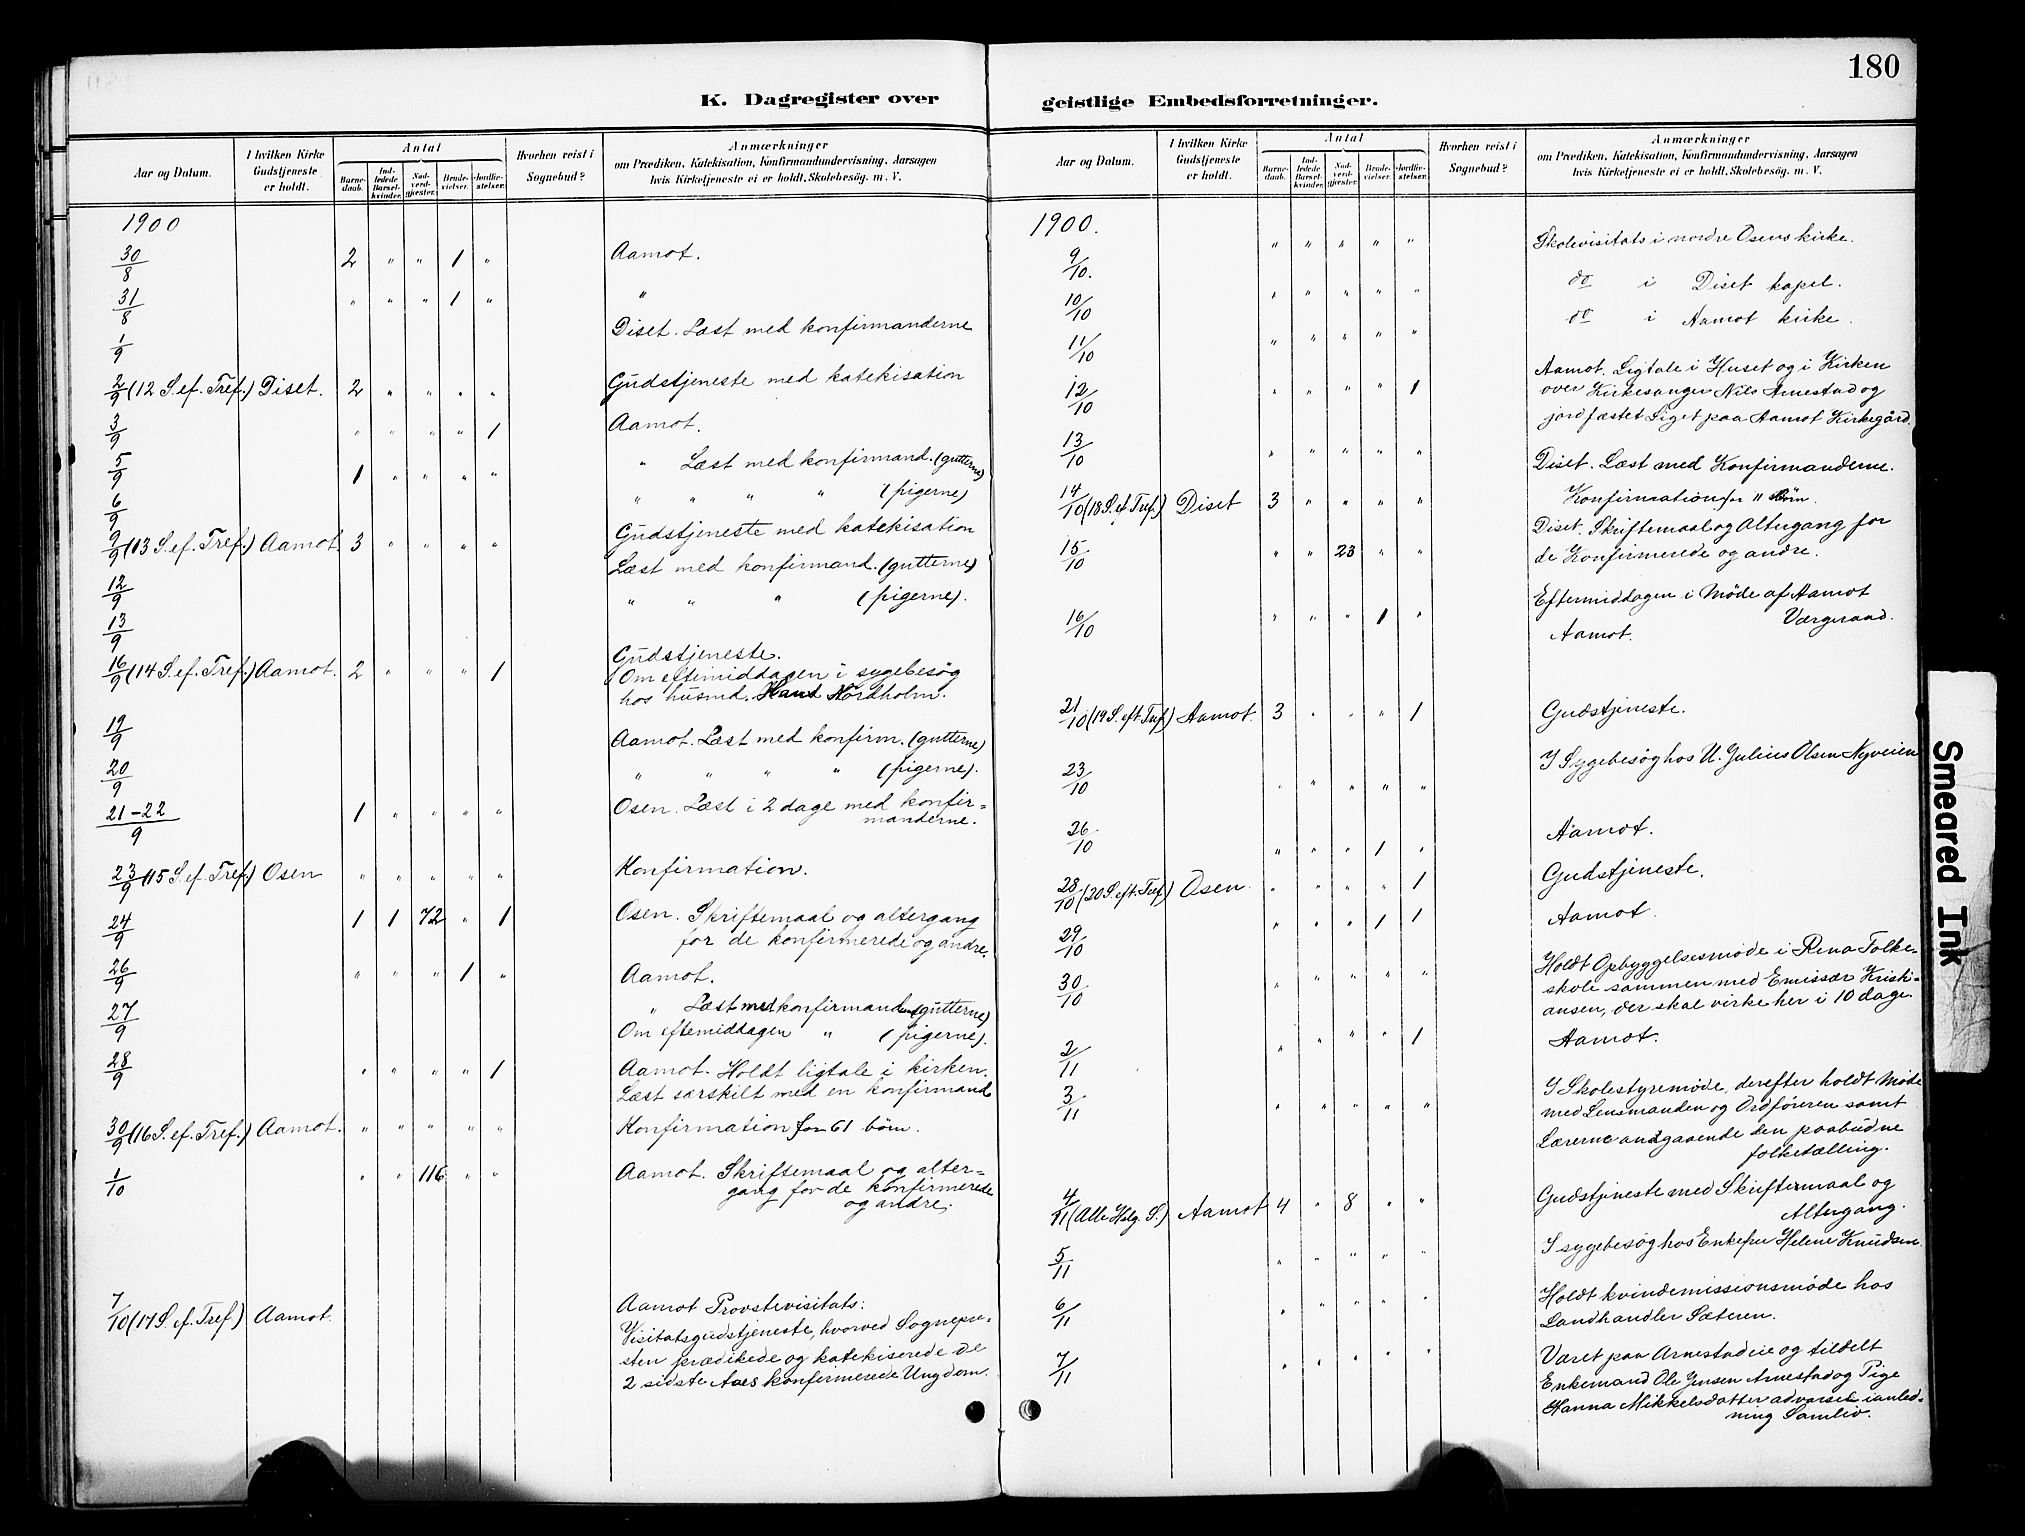 180
K. Dagregister over geistlige Embedsforretninger.
Aar og Datum. I hvilken Kirke Gudstjeneste er holdt. Antal Barnedaab. Indledede Barselkvinder. Nadverdgjester. Brudevielser. Jordfæstelser. Hvorhen reist i Sognebud? Anmærkninger om Prædiken, Katekisation, Konfirmandundervisning, Aarsagen hvis Kirketjeneste ei er holdt, Skolebesøg. m. V.
1900
30/8 2 " " 1 " Aamot.
31/8 " " " 1 " "
1/9 Diset. Læst med konfirmanderne
2/9 (12 S. ef. Tref.) Diset. 2 " " " " Gudstjeneste med katekisation
3/9 " " " " 1 Aamot.
5/9 1 " " " " " Læst med konfirmand. (gutterne)
6/9 " " " " (pigerne)
9/9 (13 S. ef. Tref.) Aamot. 3 " " " " Gudstjeneste med katekisation
12/9 Læst med konfirmand. (gutterne)
13/9 " " " (pigerne).
16/9 (14 S. ef. Tref.) Aamot. 2 " " " 1 Gudstjeneste.
Om eftemiddagen i sygebesøg
hos husmd. Nordholm.
19/9 Aamot. Læst med konfirm. (gutterne)
20/9 " " " " (pigerne).
21-22/9 1 " " " " Osen. Læst i 2 dage med konfir=
manderne.
23/9 (15 S. ef. Tref.) Osen " " " " " Konfirmation.
24/9 1 1 72 " 1 Osen. Skriftemaal og altergang
for de konfirmerede og andre.
26/9 " " " 1 " Aamot.
27/9 " Læst med konfirmand (gutterne)
Om eftemiddagen " (pigerne).
28/9 " " " " 1 Aamot. Holdt ligtale i kirken.
Læst særskilt med en konfirmand
30/9 (16 S. ef. Tref.) Aamot. " " " " " Konfirmation for 61 børn.
1/10 " " 116 " " Aamot. Skriftemaal og alter=
gang for de konfirmerede
og andre.
7/10 (17 S. ef. Tref.) Aamot. Aamot Provstevisitats:
Visitatsgudstjeneste, hvorved Sognepre-
sten prædikede og katekiserede de
2 sidste Aars konfirmerede Ungdom.
Aar og Datum. I hvilken Kirke Gudstjeneste er holdt. Antal Barnedaab. Indledede Barselkvinder. Nadverdgjester. Brudevielser. Jordfæstelser. Hvorhen reist i Sognebud? Anmærkninger om Prædiken, Katekisation, Konfirmandundervisning, Aarsagen hvis Kirketjeneste ei er holdt, Skolebesøg. m. V.
1900.
9/10. " " " " " Skolevisitats i nordre Osens kirke.
10/10 " " " " " do i Diset kapel.
11/10 " " " " " do i Aamot kirke.
12/10 " " " " 1 Aamot. Ligtale i Huset og i Kirken
over Kirkesanger Nils Arnestad og
jordfæstet Liget paa Aamot Kirkegård.
13/10 " " " " " Diset. Læst med Konfirmanderne.
14/10 (18 S. ef. Tref.) Diset 3 " " " " Konfirmation for 11 børn.
15/10 " " 23 " " Diset. Skriftemaal og Altergang for
de Konfirmerede og andre.
Eftermiddagen i Møde af Aamot
Værgeraad.
16/10 " " " 1 " Aamot.
21/10 (19 S. eft. Tref.) Aamot. 3 " " " 1 Gudstjeneste.
23/10 " " " " " I Sygebesøg hos U. Julius Olsen Nyveien
26/10 " " " 1 " Aamot.
28/10 (20 S. eft. Tref.) Osen. " " " " 1 Gudstjeneste.
29/10 " " " 1 1 Aamot.
30/10 " " " " " Holdt Opbyggelsesmøde i Rena Folke-
skole sammen med Emissær Kristi-
ansen, der skal virke her i 10 dage.
2/11 " " " " 1 Aamot.
3/11 " " " " " I Skolestyremøde, derefter holdt Møde
med Lensmanden og Ordføreren samt
Lærerne angaaende den paabudne
folketælling.
4/11 (Alle Helg. S.) Aamot 4 " 8 " " Gudstjeneste med Skriftemaal og
Altergang.
5/11 " " " " " I sygebesøg hos Enkefru Helene Knudsen.
6/11 " " " " " Holdt kvindemissionsmøde hos
Landhandler Sæteren.
7/11 " " " " " Været paa Arnestadeie og tildelt
Enkemand Ole Jensen Arnestad og Pige
Hanna Mikkelsdatter advarsel i anled-
ning Samliv.
Smeared Ink